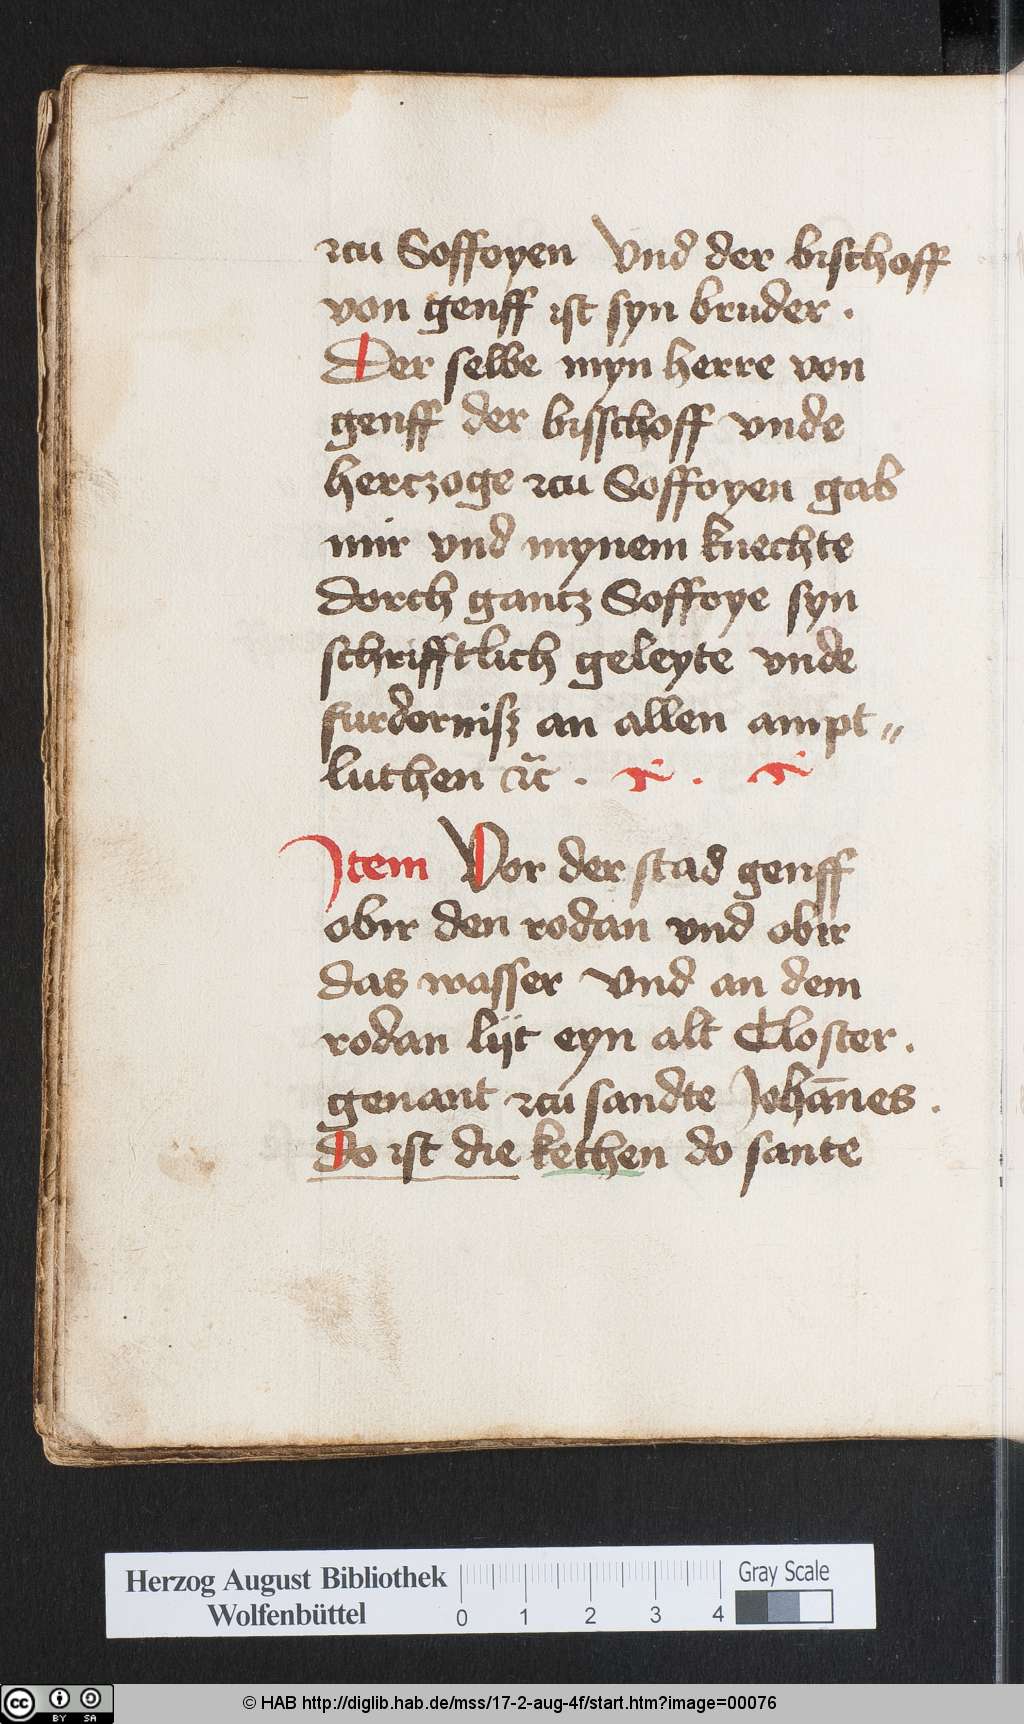 zcu Soffoyen Vnd der bischoff
von genff ist syn bruder .
Der selbe myn herre von
genff der bisschoff vnde
herczoge zcu Soffoyen gab
mir vnd mynem knechte
dorch gantz Soffoye syn
schrifftlich geleyte vnde
furdornisz an allen ampt„
luthen ꝛc̃ .
Item Vor der stad genff
obir den rodan vnd obir
das wasser Vnd an dem
rodan lijt eyn alt Closter .
genant zcu sandte Johānes .
Do ist die kethen do sante
Herzog August Bibliothek
Wolfenbüttel
0 1 2 3 4
Gray Scale
cc BY SA
© HAB http://diglib.hab.de/mss/17-2-aug-4f/start.htm?image=00076